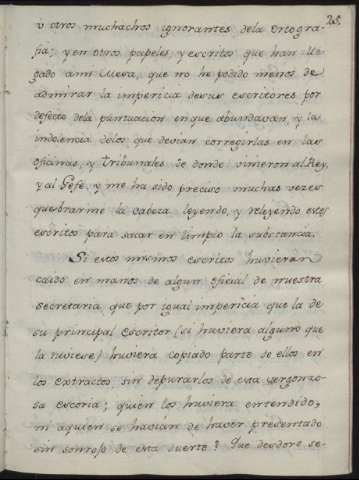 25.
ú otros muchachos ignorantes dela ortogra-
fia; y en otros papeles, y escritos que han lle-
gado a mi Mesa, que no he podido menos de
admirar la impericia desus escritores por
defecto dela puntuacion en que abundavan, y la
indolencia delos que devian corregirlas en las
oficinas, y tribunales de donde vinieron al Rey,
y al Gefe, y me ha sido preciso muchas vezes
quebrarme la cabeza leyendo, y releyendo estos
escritos para sacar en limpio la substancia.
Si estos mismos escritos huvieran
caido en manos de algun oficial de nuestra
secretaria que por igual impericia que la de
su principal escritor (si huviera alguno que
la tuviese) huviera copiado parte de ellos en
los extractos sin depurarlos de esta vergonzo-
sa escoria; quien los huviera entendido,
ni aquien se havian de haver presentado
sin sonrojo de esta suerte? Que desdore se-